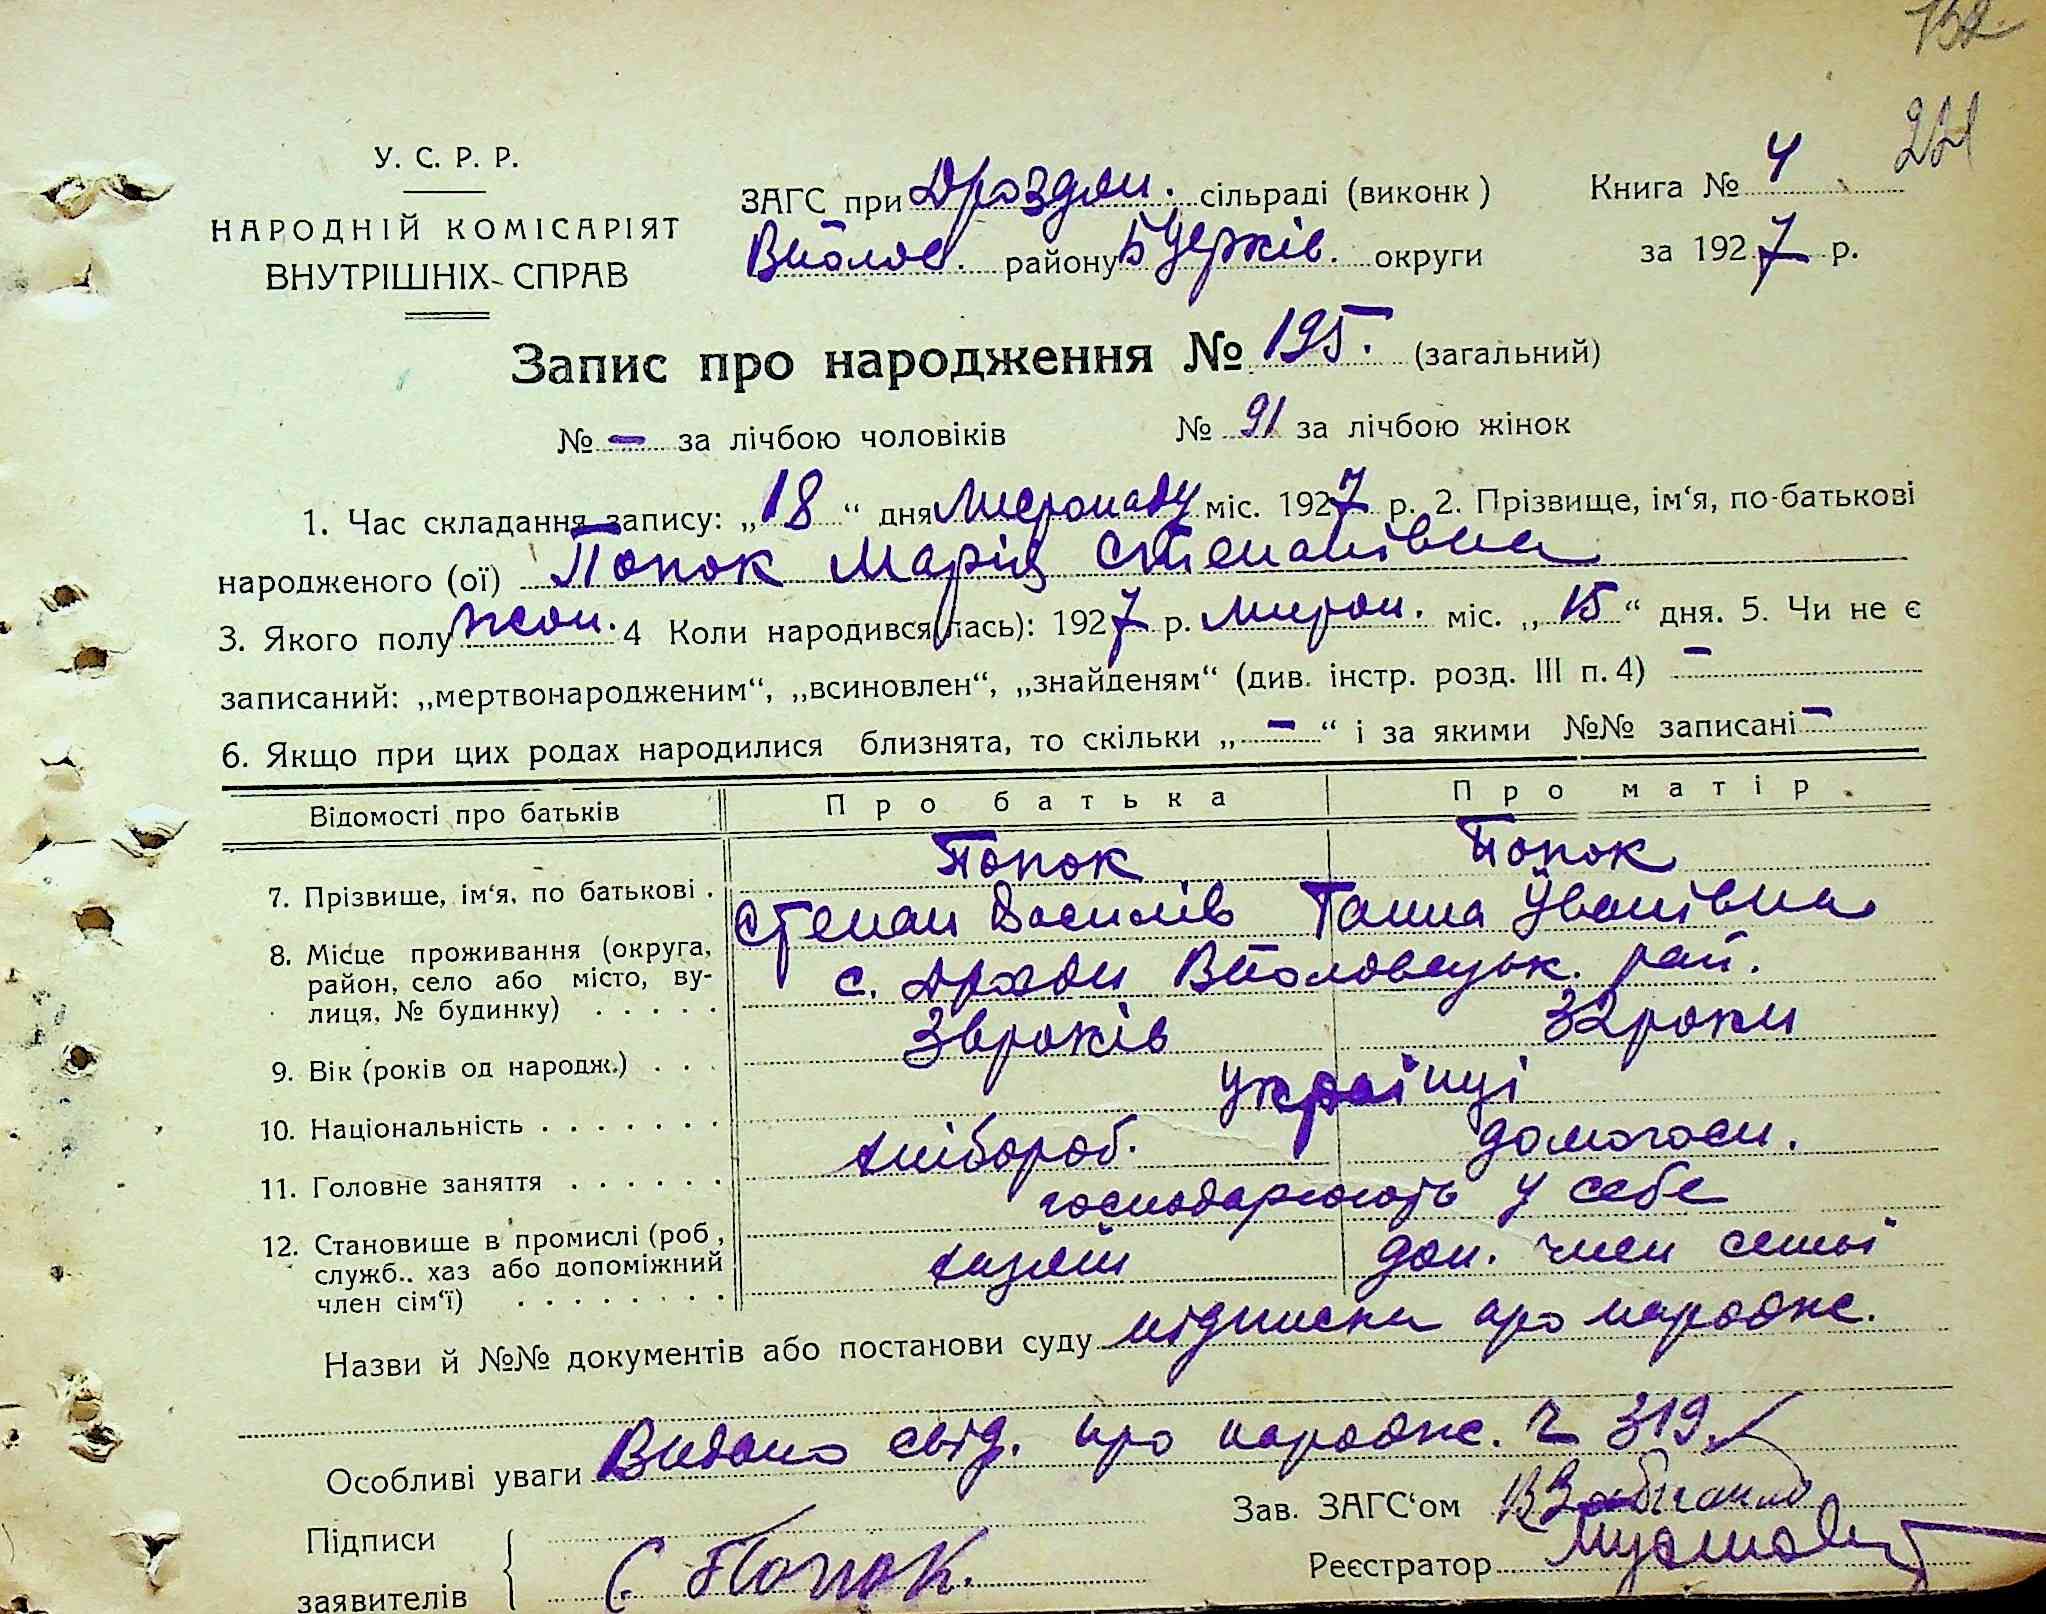 152
221
У. С. Р. Р.
НАРОДНІЙ КОМІСАРІЯТ
ВНУТРІШНІХ СПРАВ
ЗАГС при Дроздян. сільраді (виконк)
Книга № 4
Віполов. району БЦерків. округи
за 1927 р.
Запис про народження № 195. (загальний)
№ – за лічбою чоловіків № 91 за лічбою жінок
1. Час складання запису: „18“ дня Листопаду міс. 1927 р. 2. Прізвище, ім‘я, по-батькові
народженого (ої) Попок Марія Степанівна
3. Якого полу жон. 4 Коли народився(лась): 1927 р. міс. „15“ дня. 5. Чи не є
записаний: „мертвонародженим“, „всиновлен“, „знайденям“ (див. інстр. розд. III п. 4) –
6. Якщо при цих родах народилися близнята, то скільки „–“ і за якими №№ записані –
Відомості про батьків
Про батька
Про матір.
7. Прізвище, ім‘я, по батькові .
Попок
Попок
Степан Василів Ганна Іванівна
8. Місце проживання (округа,
район, село або місто, ву-
лиця, № будинку) . . . . .
с. Дрозди Вітоловецьк. рай.
9. Вік (років од народж.) . . .
36років
32роки
10. Національність . . . . . . .
українці
11. Головне заняття . . . . . .
хлібороб.
домогосп.
12. Становище в промислі (роб,
служб.. хаз або допоміжний
член сім‘ї) . . . . . . . .
господарюють у себе
хазяїн
доп. член семьї
Назви й №№ документів або постанови суду підписки про народж.
Особливі уваги Видано свід. про народж. Ч 319
Підписи
заявителів
С. Попок.
Зав. ЗАГС‘ом
Реєстратор